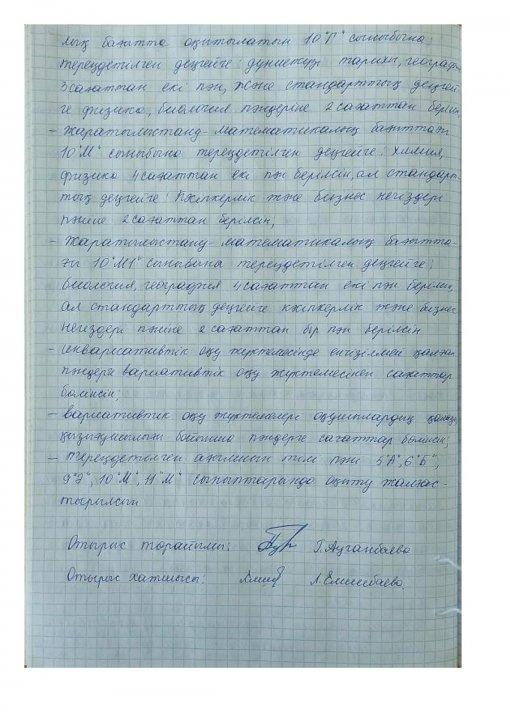 лық бағытта оқытылатын 10"Г" сыныбына
тереңдетілген деңгейге: дүниежүзі тарихы, географ
3 сағаттан екі пән, және стандарттық деңгей
ге физика, биология пәндеріне 2 сағаттан беріл
- Жаратылыстану-математикалық бағыттағы
10"М" сыныбына тереңдетілген деңгейге: химия,
физика 4 сағаттан екі пән берілсін, ал стандарт-
тық деңгейге: Кәсіпкерлік және бизнес негіздері
пәніне 2 сағаттан берілсін;
- Жаратылыстану-математикалық бағытта-
ғы 10"М1" сыныбына тереңдетілген деңгейге:
биология, география 4 сағаттан екі пән берілсін,
ал стандарттық деңгейге кәсіпкерлік және бизнес
негіздері пәніне 2 сағаттан бір пән берілсін
- инвариативтік оқу жүктемесінде енгізілмей қалған
пәндерге вариативтік оқу жүктемесінен сағаттар
бөлінсін;
- вариативтік оқу жүктемелері оқушылардың қалауы,
қызығушылығы бойынша пәндерге сағаттар бөлінсін;
- Тереңдетілген ағылшын тілі пәні 5"А", 6"Б",
9"Э", 10"М", 11"М" сыныптарында оқыту жалғас-
тырылсын
Отырыс төрайымы: Г. Ауганбаева
Отырыс хатшысы: Л. Емишбаева.